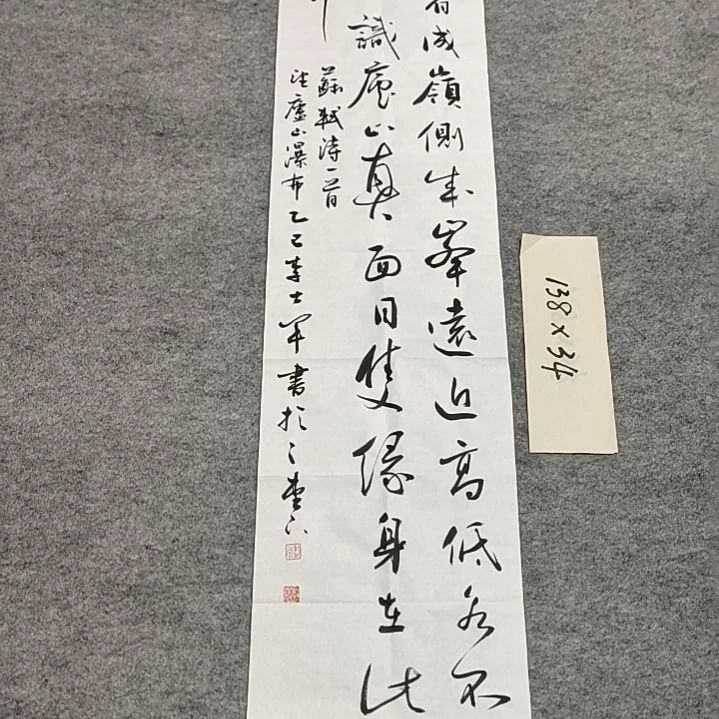 成嶺側成峯遠近高低各不
識廬山真面目隻緣身在此
蘇軾詩一首
望廬山瀑布乙巳李士军書於
138×34